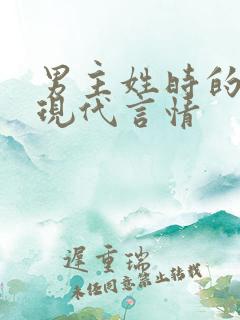 男主姓時的
現代言情
遲重瑞
未经同意禁止转载